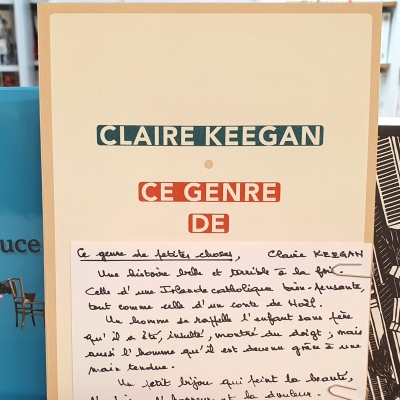 CLAIRE KEEGAN
CE GENRE
DE
uce
Ce genre de petites choses, Claire KEEGAN
Une histoire belle et terrible à la fois.
Celle d'une Irlande catholique bien-pensante,
tout comme celle d'un conte de Noël.
Un homme se rappelle l'enfant sans père
qu'il a été, insulté, montré du doigt ; mais
aussi l'homme qu'il est devenu grâce à une
main tendue.
Un petit bijou qui peint la beauté,
l'horreur et la douleur.